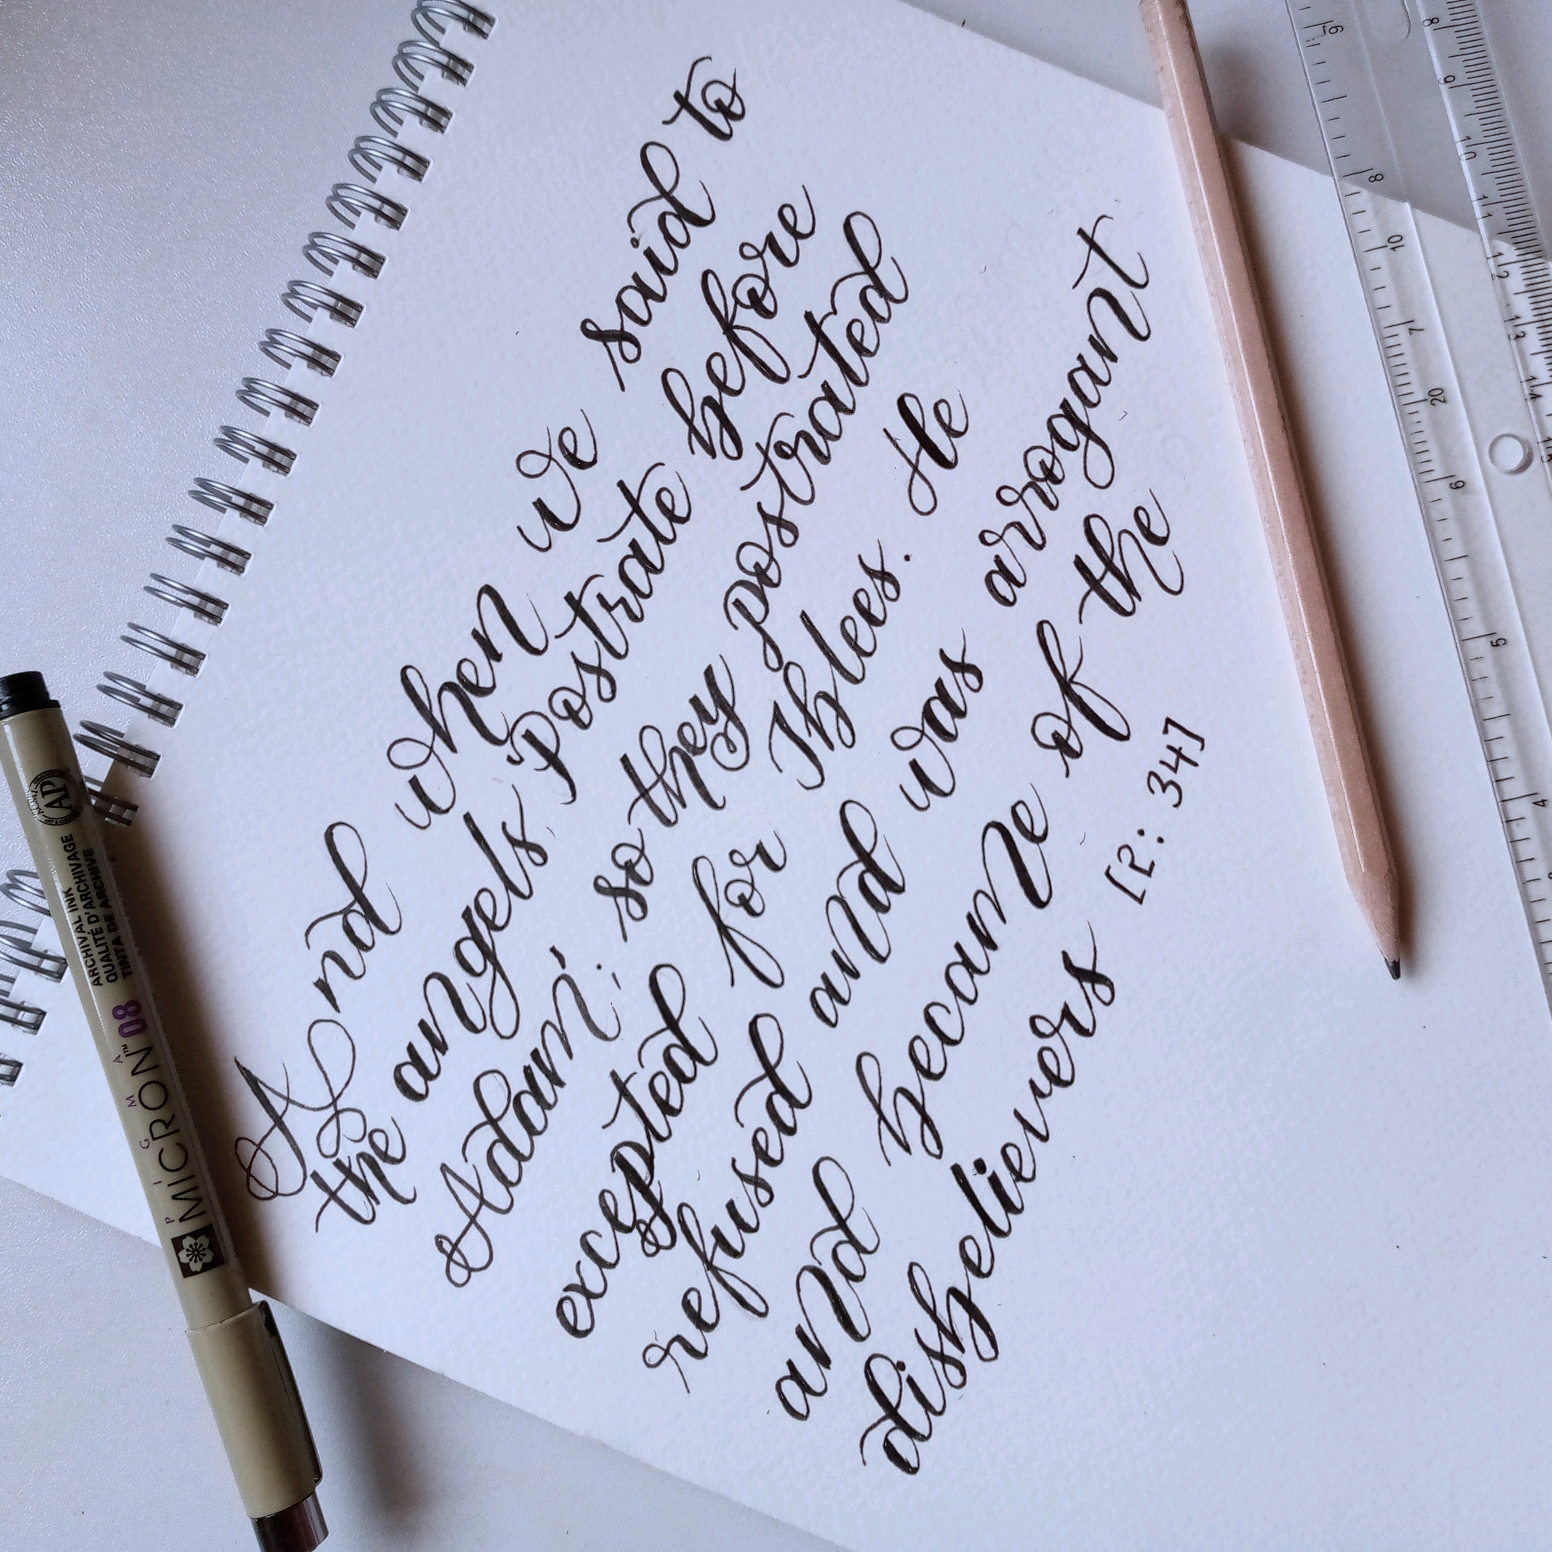 And when we said to
the angels, 'Postrate before
Adam'; so they postrated
excepted for Iblees. He
refused and was arrogant
and became of the
disbelievers [2: 34]
AP
ARCHIVAL INK
QUALITÉ D'ARCHIVAGE
TINTA DE ARCHIVE
PIGMA
MICRON™ 08